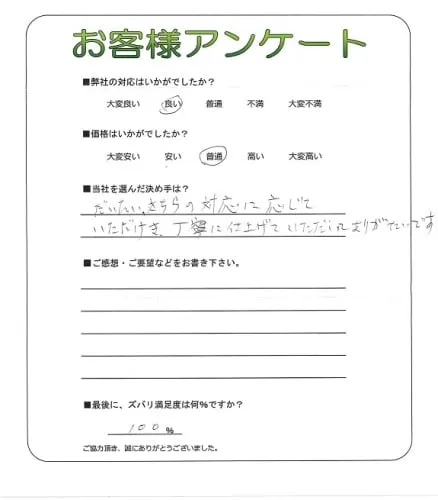 お客様アンケート
■弊社の対応はいかがでしたか？
大変良い 良い 普通 不満 大変不満
■価格はいかがでしたか？
大変安い 安い 普通 高い 大変高い
■当社を選んだ決め手は？
だいたい、こちらの対応に応じて
いただけき、丁寧に仕上げていただけれありがたいです
■ご感想・ご要望などをお書き下さい。
■最後に、ズバリ満足度は何％ですか？
100 %
ご協力頂き、誠にありがとうございました。